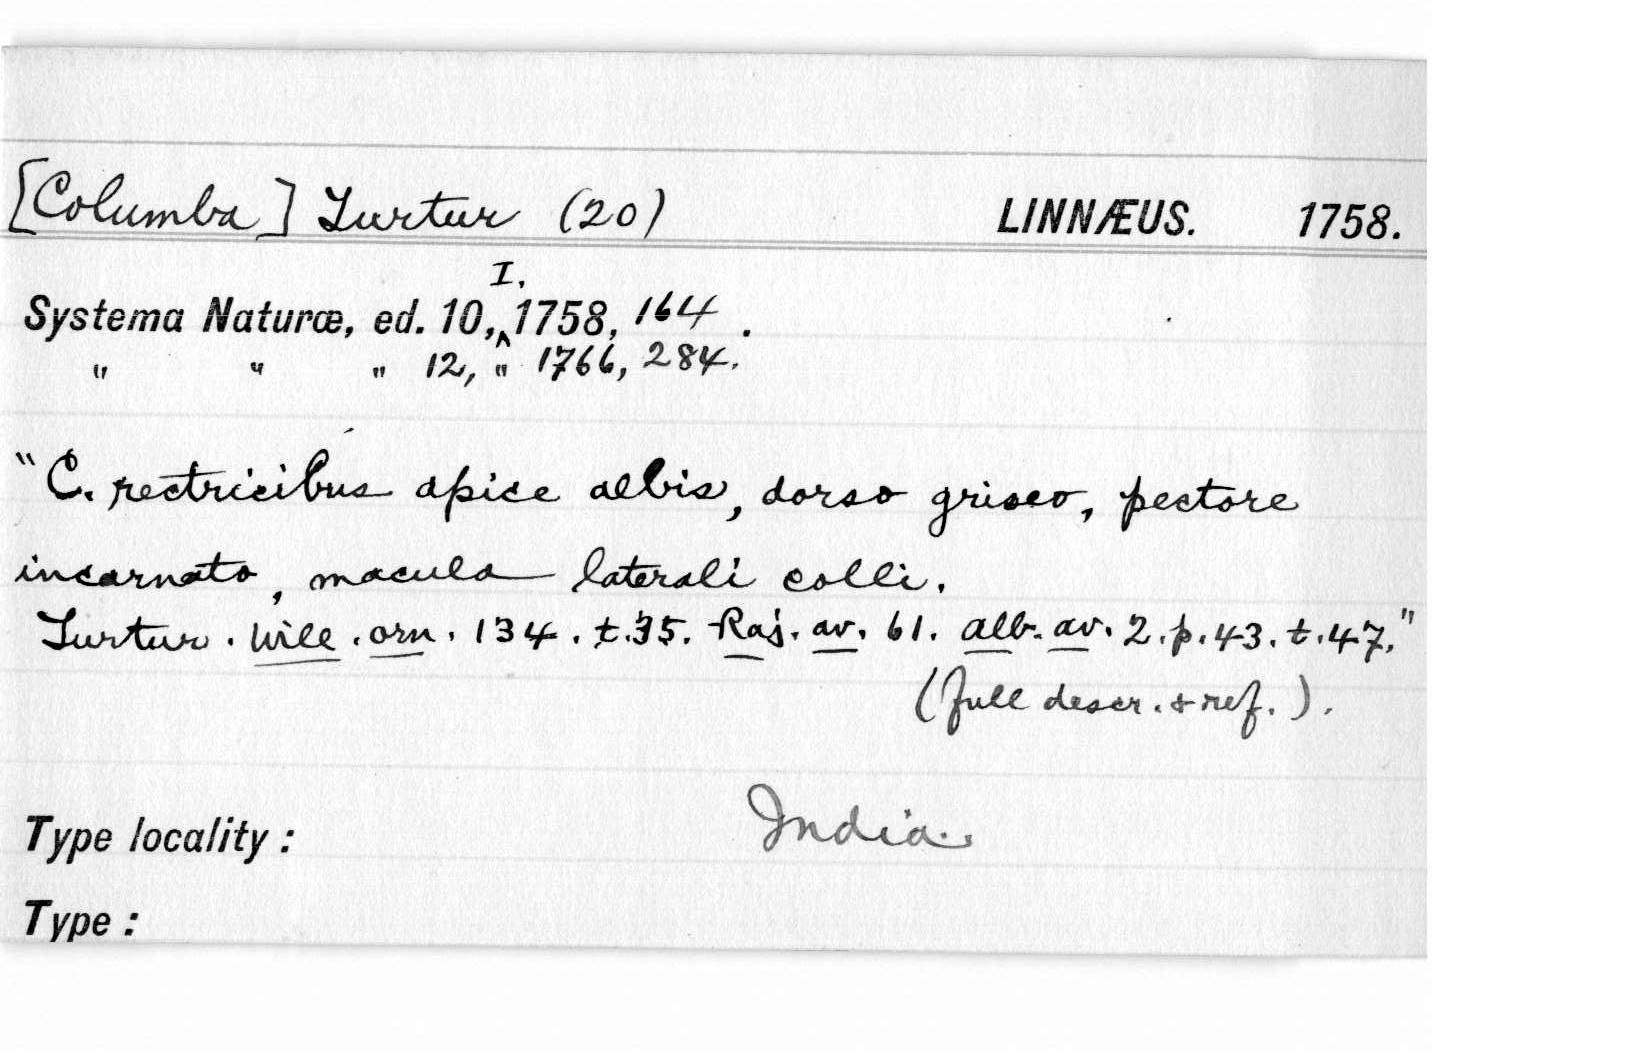 [Columba] Turtur (20) LINNÆUS. 1758.
Systema Naturæ, ed. 10, I, 1758, 164.
" " " 12, " 1766, 284.
"C. rectricibus apice albis, dorso griseo, pectore
incarnato, macula laterali colli.
Turtur. Will. orn. 134. t.35. Raj. av. 61. Alb. av. 2. p. 43. t. 47."
(full descr. & ref.).
Type locality: India.
Type: